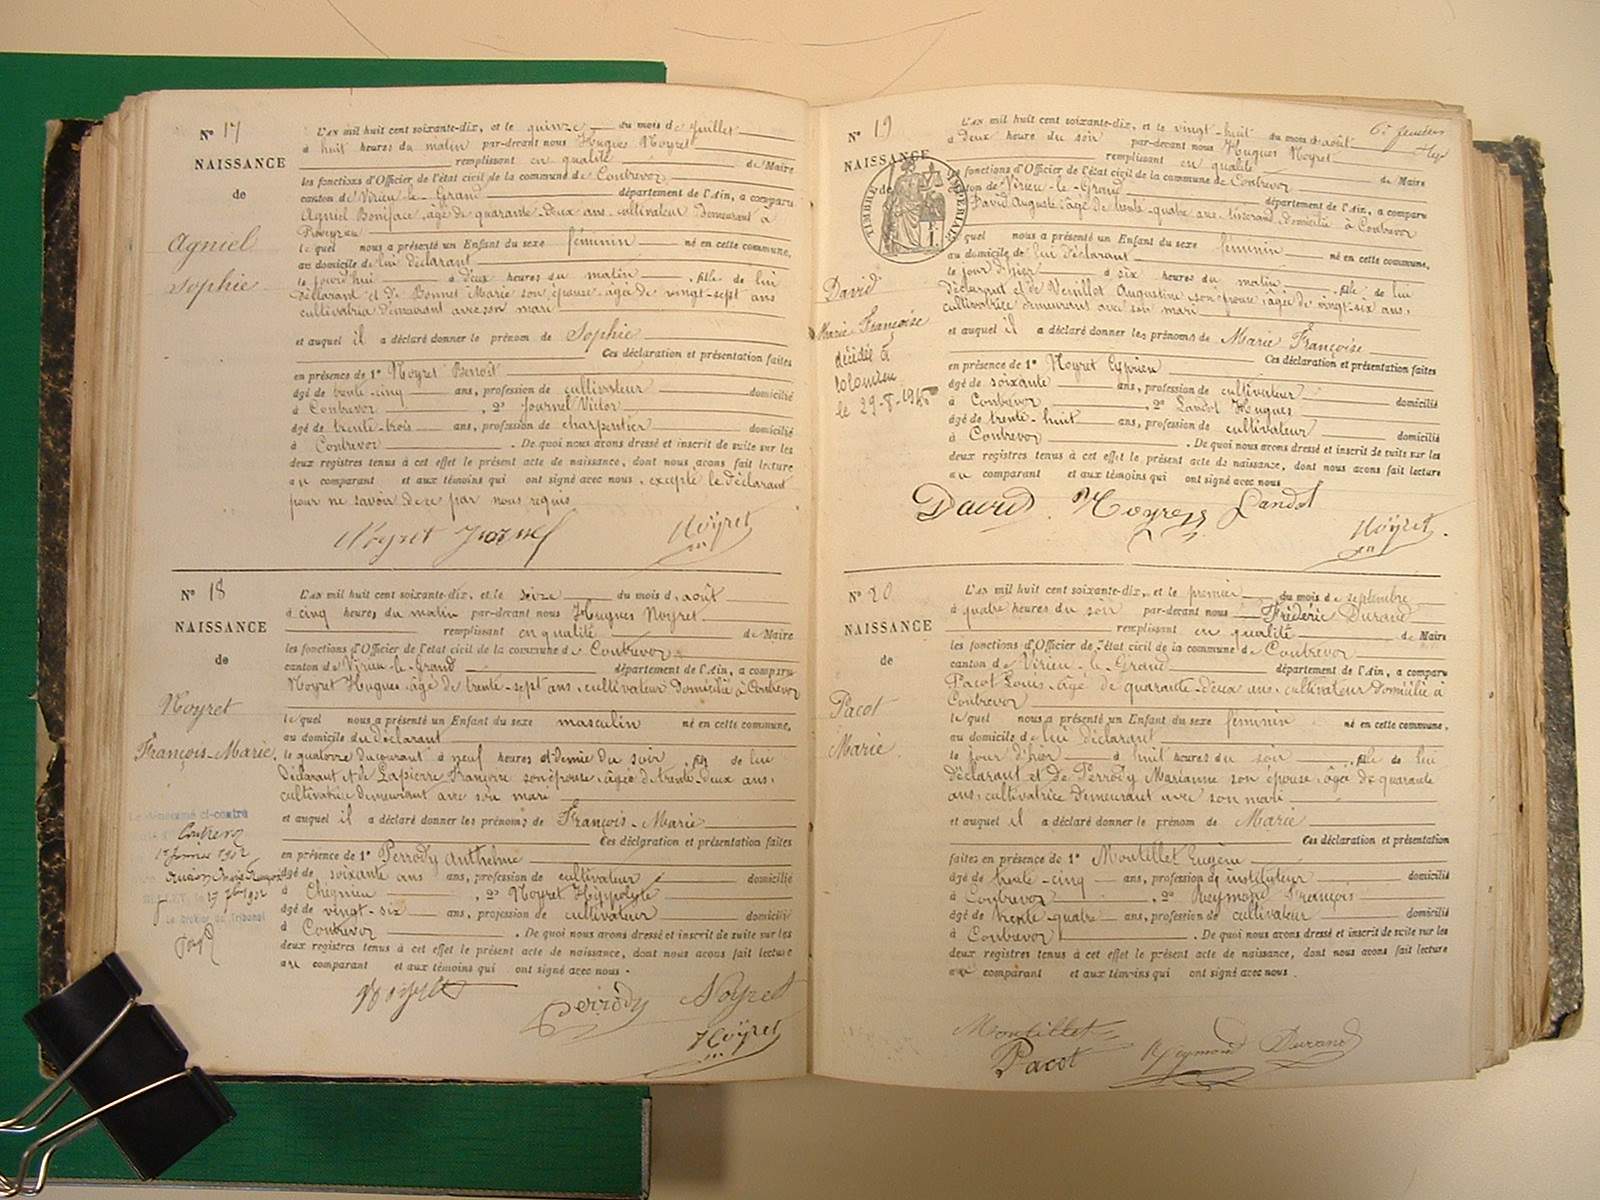 N° 17
NAISSANCE
de
Agniel
Sophie
L'an mil huit cent soixante-dix, et le quinze du mois de Juillet
à huit heures du matin par-devant nous Hugues Noyret
remplissant en qualité de Maire
les fonctions d'Officier de l'état civil de la commune de Contrevoz
canton de Virieu-le-Grand département de l'Ain, a comparu
Agniel Boniface, âgé de quarante-deux ans, cultivateur demeurant à
le quel nous a présenté un Enfant du sexe féminin né en cette commune,
au domicile de lui déclarant
le jourd'hui à deux heures du matin, fille de lui
déclarant et de Bonnet Marie son épouse, âgée de vingt-sept ans
cultivatrice demeurant avec son mari
et auquel il a déclaré donner le prénom de Sophie
Ces déclaration et présentation faites
en présence de 1° Noyret Benoît
âgé de trente-cinq ans, profession de cultivateur domicilié
à Contrevoz, 2° Journel Victor
âgé de trente-trois ans, profession de charpentier domicilié
à Contrevoz. De quoi nous avons dressé et inscrit de suite sur les
deux registres tenus à cet effet le présent acte de naissance, dont nous avons fait lecture
au comparant et aux témoins qui ont signé avec nous, excepté le déclarant
pour ne savoir de ce par nous requis
Noyret Journel Noÿret
N° 18
NAISSANCE
de
Noyret
François-Marie.
Le dénommé ci-contre
Contrevoz
L'an mil huit cent soixante-dix, et le seize du mois d'août
à cinq heures du matin par-devant nous Hugues Noyret
remplissant en qualité de Maire
les fonctions d'Officier de l'état civil de la commune de Contrevoz
canton de Virieu-le-Grand département de l'Ain, a comparu
Noyret Hugues, âgé de trente-sept ans, cultivateur domicilié à Contrevoz
le quel nous a présenté un Enfant du sexe masculin né en cette commune,
au domicile du déclarant
le quatorze du courant à neuf heures et demie du soir, fils de lui
déclarant et de Lapierre Françoise son épouse, âgée de trente-deux ans,
cultivatrice demeurant avec son mari
et auquel il a déclaré donner les prénoms de François-Marie
Ces déclaration et présentation faites
en présence de 1° Perrody Anthelme
âgé de soixante ans ans, profession de cultivateur domicilié
à Cheignieu, 2° Noyret Hippolyte
âgé de vingt-six ans, profession de cultivateur domicilié
à Contrevoz. De quoi nous avons dressé et inscrit de suite sur les
deux registres tenus à cet effet le présent acte de naissance, dont nous avons fait lecture
au comparant et aux témoins qui ont signé avec nous.
Noyret Perrody Noyret
Noÿret
N° 19
NAISSANCE
de
TIMBRE IMPÉRIAL
David
Marie Françoise
décédée à
Colomieu
L'an mil huit cent soixante-dix, et le vingt-huit du mois d'août
à deux heure du soir par-devant nous Hugues Noyret
remplissant en qualité de Maire
les fonctions d'Officier de l'état civil de la commune de Contrevoz
canton de Virieu-le-Grand département de l'Ain, a comparu
David Auguste, âgé de trente-quatre ans, tisserand domicilié à Contrevoz
le quel nous a présenté un Enfant du sexe féminin né en cette commune,
au domicile de lui déclarant
le jour d'hier à six heures du matin, fille de lui
déclarant et de Venillot Augustine son épouse, âgée de vingt-six ans,
cultivatrice demeurant avec son mari
et auquel il a déclaré donner les prénoms de Marie Françoise
Ces déclaration et présentation faites
en présence de 1° Noyret Cyprien
âgé de soixante ans, profession de cultivateur domicilié
à Contrevoz, 2° Landot Hugues
âgé de trente-huit ans, profession de cultivateur domicilié
à Contrevoz. De quoi nous avons dressé et inscrit de suite sur les
deux registres tenus à cet effet le présent acte de naissance, dont nous avons fait lecture
au comparant et aux témoins qui ont signé avec nous
David Noyret Landot
Noÿret
N° 20
NAISSANCE
de
Pacot
Marie
L'an mil huit cent soixante-dix, et le premier du mois de septembre
à quatre heures du soir par-devant nous Frédéric Durand
remplissant en qualité de Maire
les fonctions d'Officier de l'état civil de la commune de Contrevoz
canton de Virieu-le-Grand département de l'Ain, a comparu
Pacot Louis, âgé de quarante-deux ans, cultivateur domicilié à
Contrevoz
le quel nous a présenté un Enfant du sexe féminin né en cette commune,
au domicile de lui déclarant
le jour d'hier à huit heures du soir, fille de lui
déclarant et de Perrody Marianne son épouse, âgée de quarante
ans, cultivatrice demeurant avec son mari
et auquel il a déclaré donner le prénom de Marie
Ces déclaration et présentation
faites en présence de 1° Montillet Eugène
âgé de trente-cinq ans, profession d'instituteur domicilié
à Contrevoz, 2° Reymond François
âgé de trente-quatre ans, profession de cultivateur domicilié
à Contrevoz. De quoi nous avons dressé et inscrit de suite sur les
deux registres tenus à cet effet le présent acte de naissance, dont nous avons fait lecture
au comparant et aux témoins qui ont signé avec nous.
Montillet
Pacot Reymond Durand